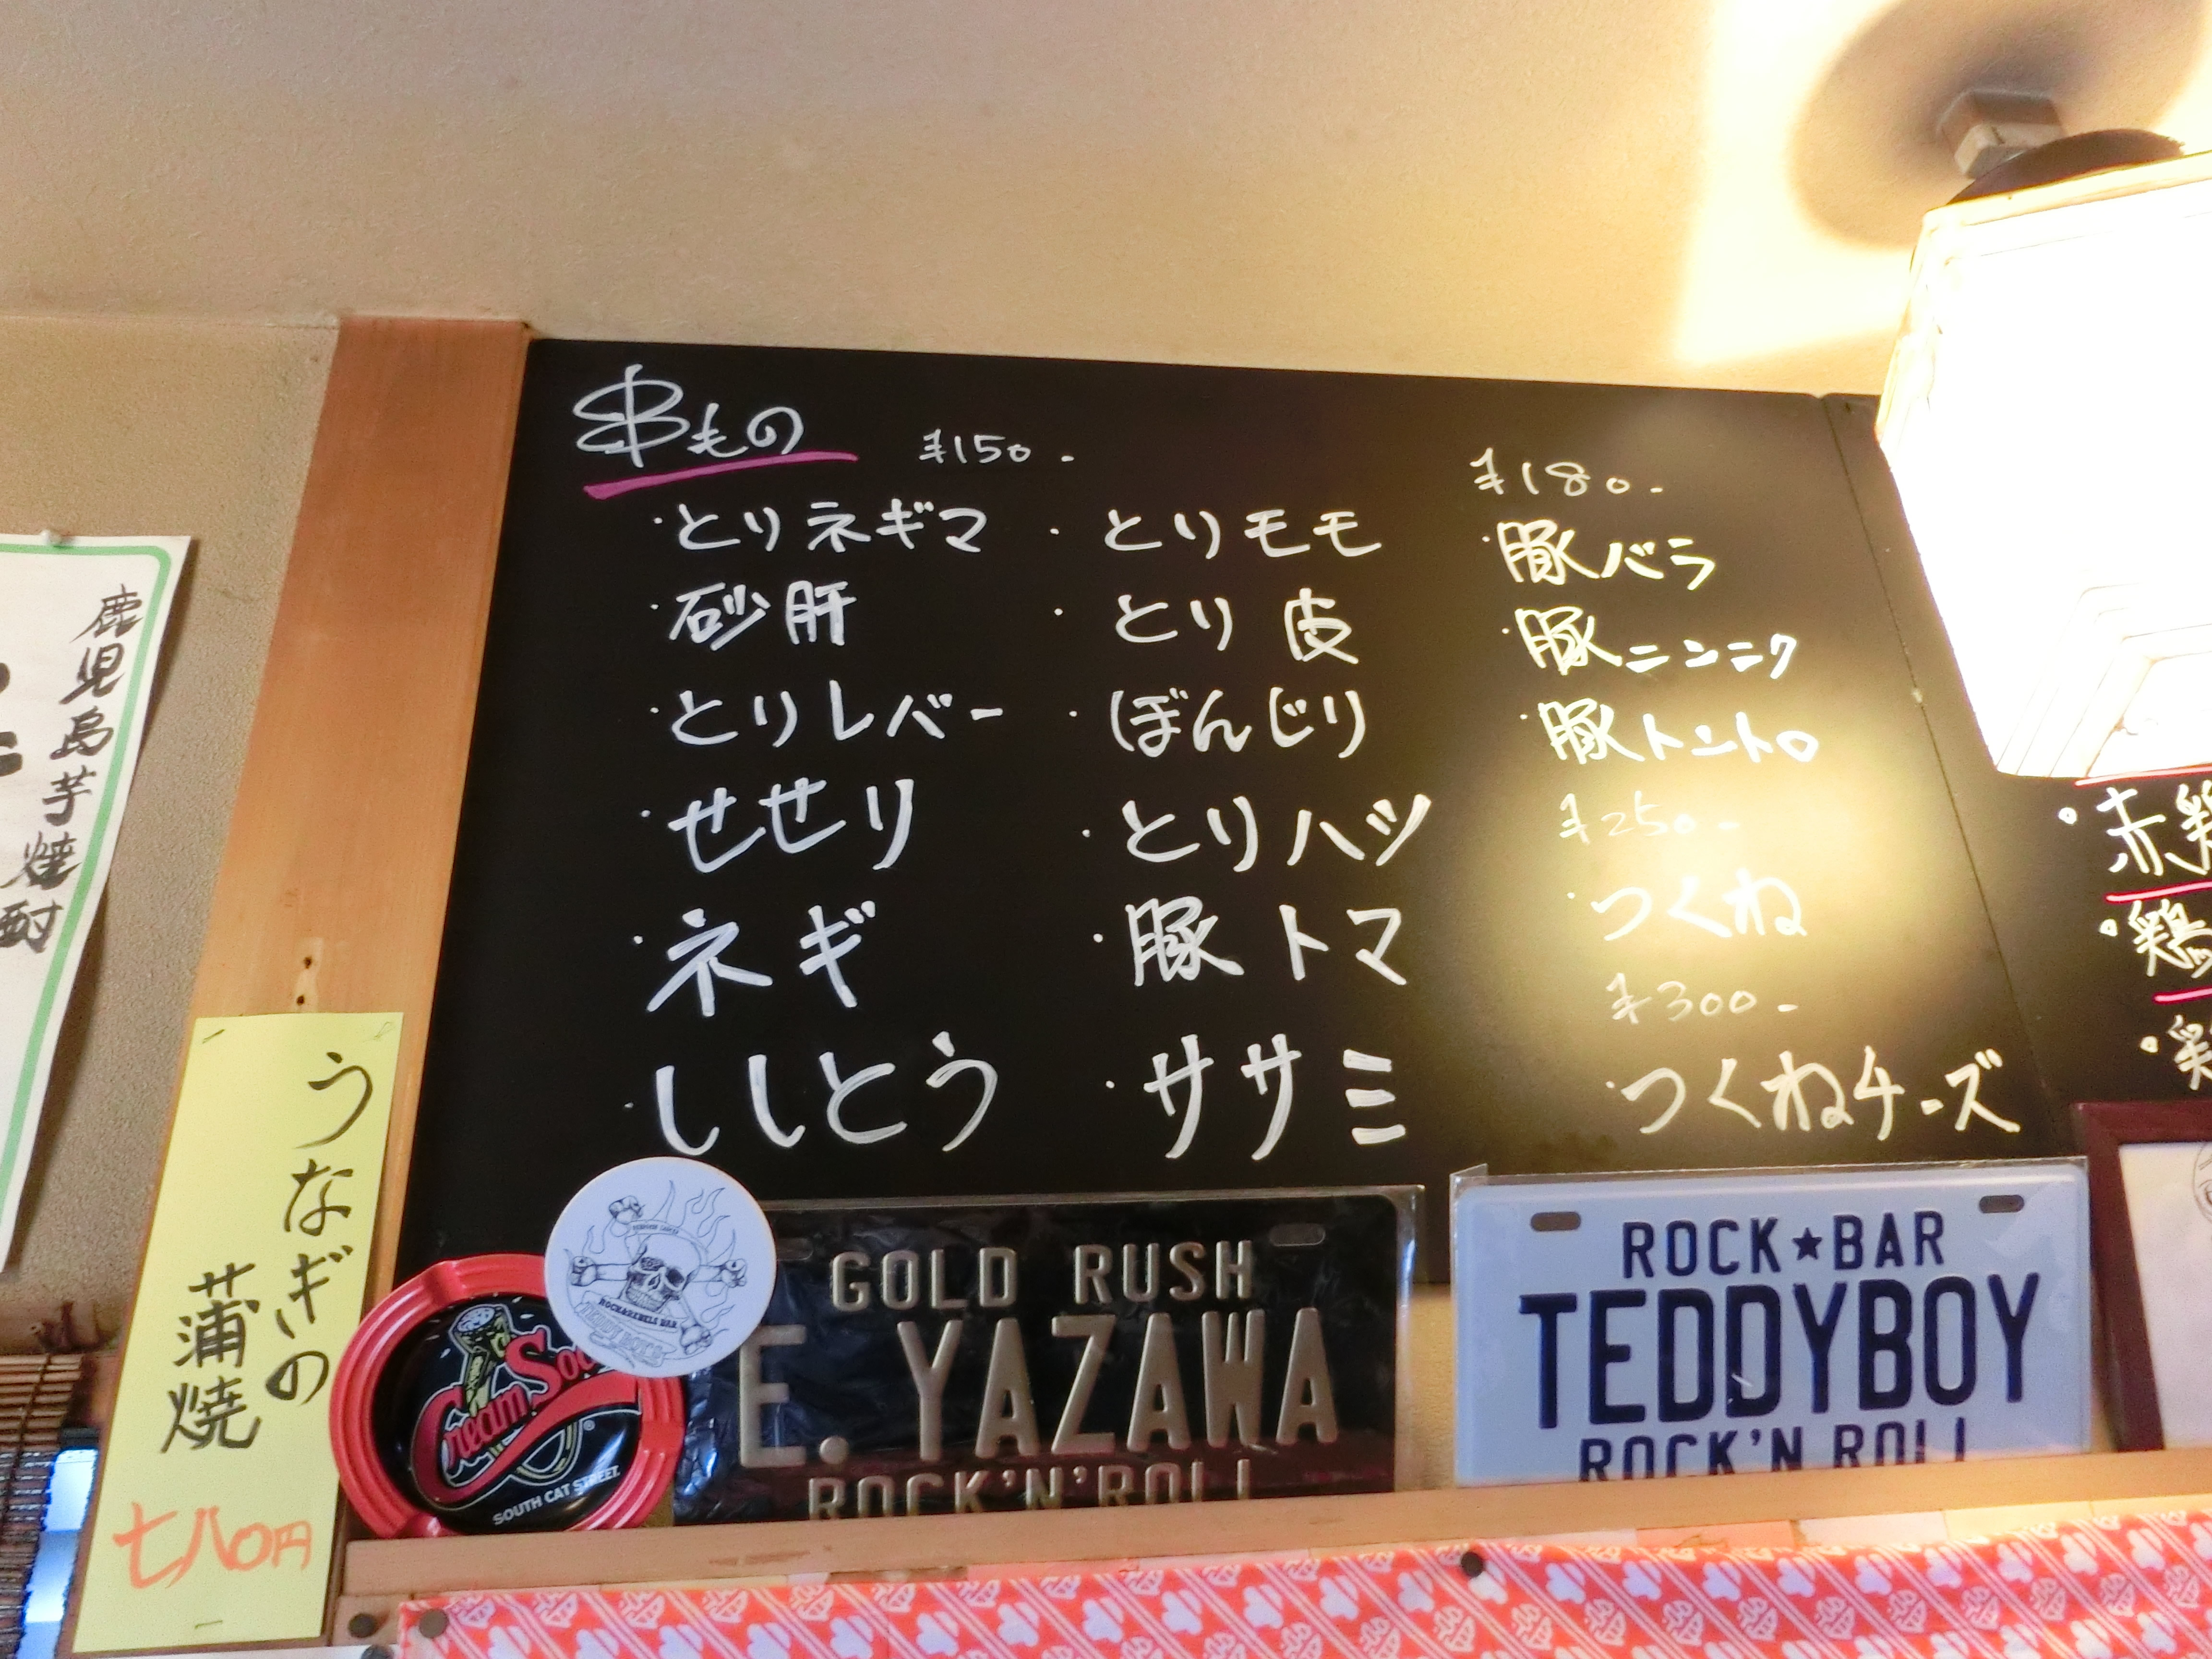 鹿児島芋焼酎
うなぎの
蒲焼
七八〇円
串もの
¥150-
・とりネギマ
・砂肝
・とりレバー
・せせり
・ネギ
・ししとう
・とりモモ
・とり皮
・ぼんじり
・とりハツ
・豚トマ
・ササミ
¥180-
・豚バラ
・豚ニンニク
・豚トントロ
¥250-
・つくね
¥300-
・つくねチーズ
・赤鶏
・鶏
Cream So
SOUTH CAT STREET
ROCK&REBELS BAR
GOLD RUSH
E. YAZAWA
ROCK'N'ROLL
ROCK★BAR
TEDDYBOY
ROCK'N ROLL